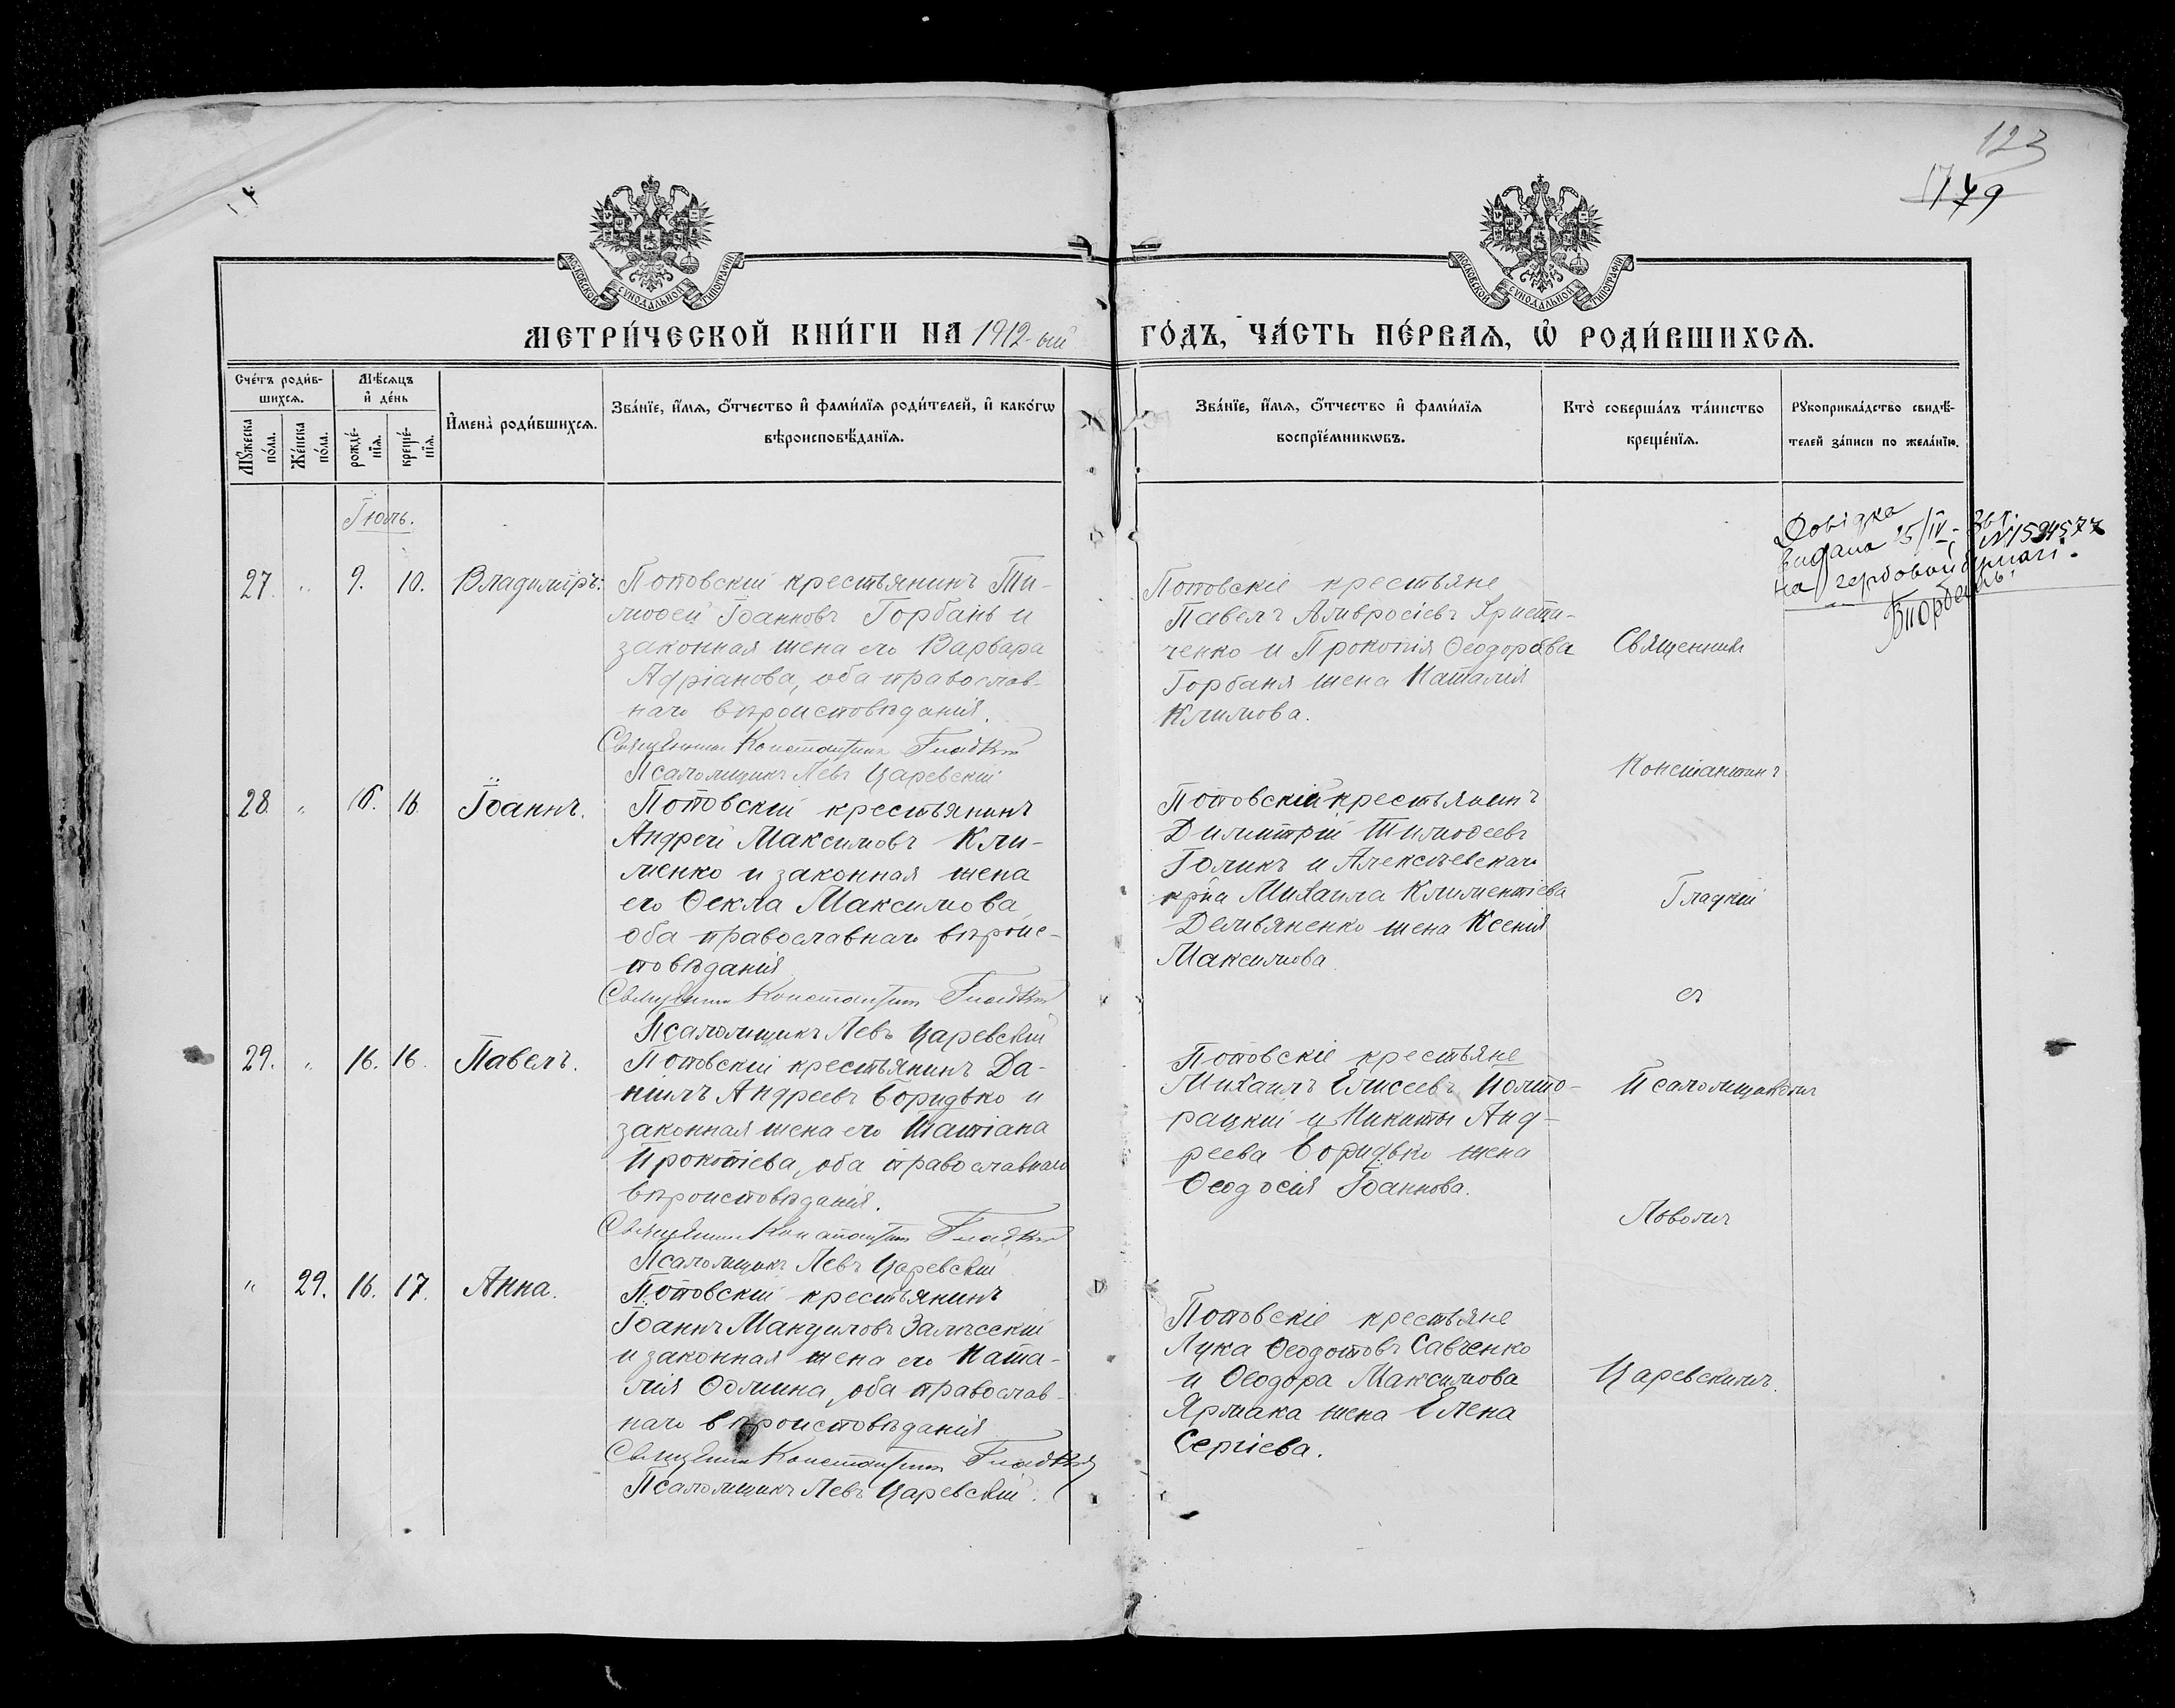 123
179
МОСКОВСКОЙ СѴНОДАЛЬНОЙ ТИПОГРАФІИ
МОСКОВСКОЙ СѴНОДАЛЬНОЙ ТИПОГРАФІИ
МЕТРИ́ЧЕСКОЙ КНИ́ГИ НА 1912-ый ГО́ДЪ, ЧА́СТЬ ПЕ́РВАѦ, Ѡ҆ РОДИ́ВШИХСѦ.
Сче́тъ роди́вшихсѧ.
Мѣ́сѧцъ и҆ де́нь
Мꙋ́жеска по́ла.
Же́нска по́ла.
рожде́нїѧ.
креще́нїѧ.
И҆мена̀ роди́вшихсѧ.
Зва́нїе, и҆́мѧ, ѻ҆́тчество и҆ фами́лїѧ роди́телей, и҆ како́гѡ
вѣроисповѣ́данїѧ.
Зва́нїе, и҆́мѧ, ѻ҆́тчество и҆ фами́лїѧ
воспрїе́мникѡвъ.
Кто̀ соверша́лъ та́инство
креще́нїѧ.
Рꙋкоприкла́дство свидѣ́-
телей за́писи по жела́нїю.
Іюль.
27. " 9. 10. Владиміръ.
Поповскій крестьянинъ Ти-
моѳей Іоанновъ Горбань и
законная жена его Варвара
Адріанова, оба православ-
наго вѣроисповѣданія.
Священникъ Константинъ Гладкій
Псаломщикъ Левъ Царевскій
Поповскіе крестьяне
Павелъ Амвросіевъ Христи-
ченко и Прокопія Ѳеодорова
Горбаня жена Наталія
Климова.
Довідка
видана 25/IV
N 1594577
на гербовой бумагі.
28. " 16. Іоаннъ.
Поповскій крестьянинъ
Андрей Максимовъ Кли-
менко и законная жена
его Ѳекла Максимова,
оба православнаго вѣроис-
повѣданія
Священникъ Константинъ Гладкій
Псаломщикъ Левъ Царевскій
Поповскій крестьянинъ
Димитрій Тимоѳеевъ
Голикъ и Алексѣевскаго
кр-на Михаила Климентіева
Демьяненко жена Ксенія
Максимова
29. " 16. 16. Павелъ.
Поповскій крестьянинъ Да-
ніилъ Андреевъ Боридько и
законная жена его Татіана
Прокопіева, оба православнаго
вѣроисповѣданія.
Священникъ Константинъ Гладкій
Псаломщикъ Левъ Царевскій
Поповскіе крестьяне
Михаилъ Елисеевъ Полто-
рацкій и Никиты Анд-
реева Боридько жена
Ѳеодосія Іоаннова.
" 29. 16. 17. Анна.
Поповскій крестьянинъ
Іоаннъ Мануиловъ Залѣсскій
и законная жена его Ната-
лія Ѳомина, оба православ-
наго вѣроисповѣданія
Священникъ Константинъ Гладкій
Псаломщикъ Левъ Царевскій.
Поповскіе крестьяне
Лука Ѳеодотовъ Савченко
и Ѳеодора Максимова
Ярмака жена Елена
Сергіева.
Священникъ
Константинъ
Гладкій
съ
Псаломщикомъ
Львомъ
Царевскимъ.